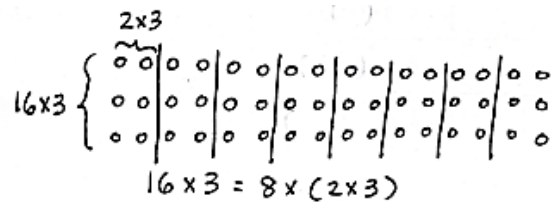 2x3
16x3
16 x 3 = 8 x (2x3)